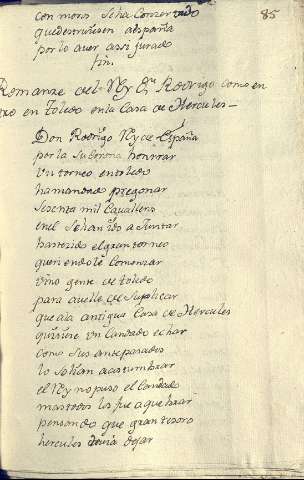 85
con moros se ha Concertado
que destruiesen a españa
por lo auer assi jurado
fin.
Romanze del Rey Don Rodrigo como en
tro en toledo en la Casa de Hercules
Don Rodrigo Rey de España
por la su Corona honrrar
un torneo en toledo
ha mandado pregonar
sesenta mil Caualleros
en el se han ido a Juntar
bastecido el gran torneo
queriendole Comenzar
vino gente de toledo
para auelle de suplicar
que a la antigua Casa de Hercules
quisiese un Candado echar
como sus antepasados
lo solian acostumbrar
el Rey no puso el Candado
mas todos los fue a quebrar
pensando que gran tesoro
hercules deuia dejar